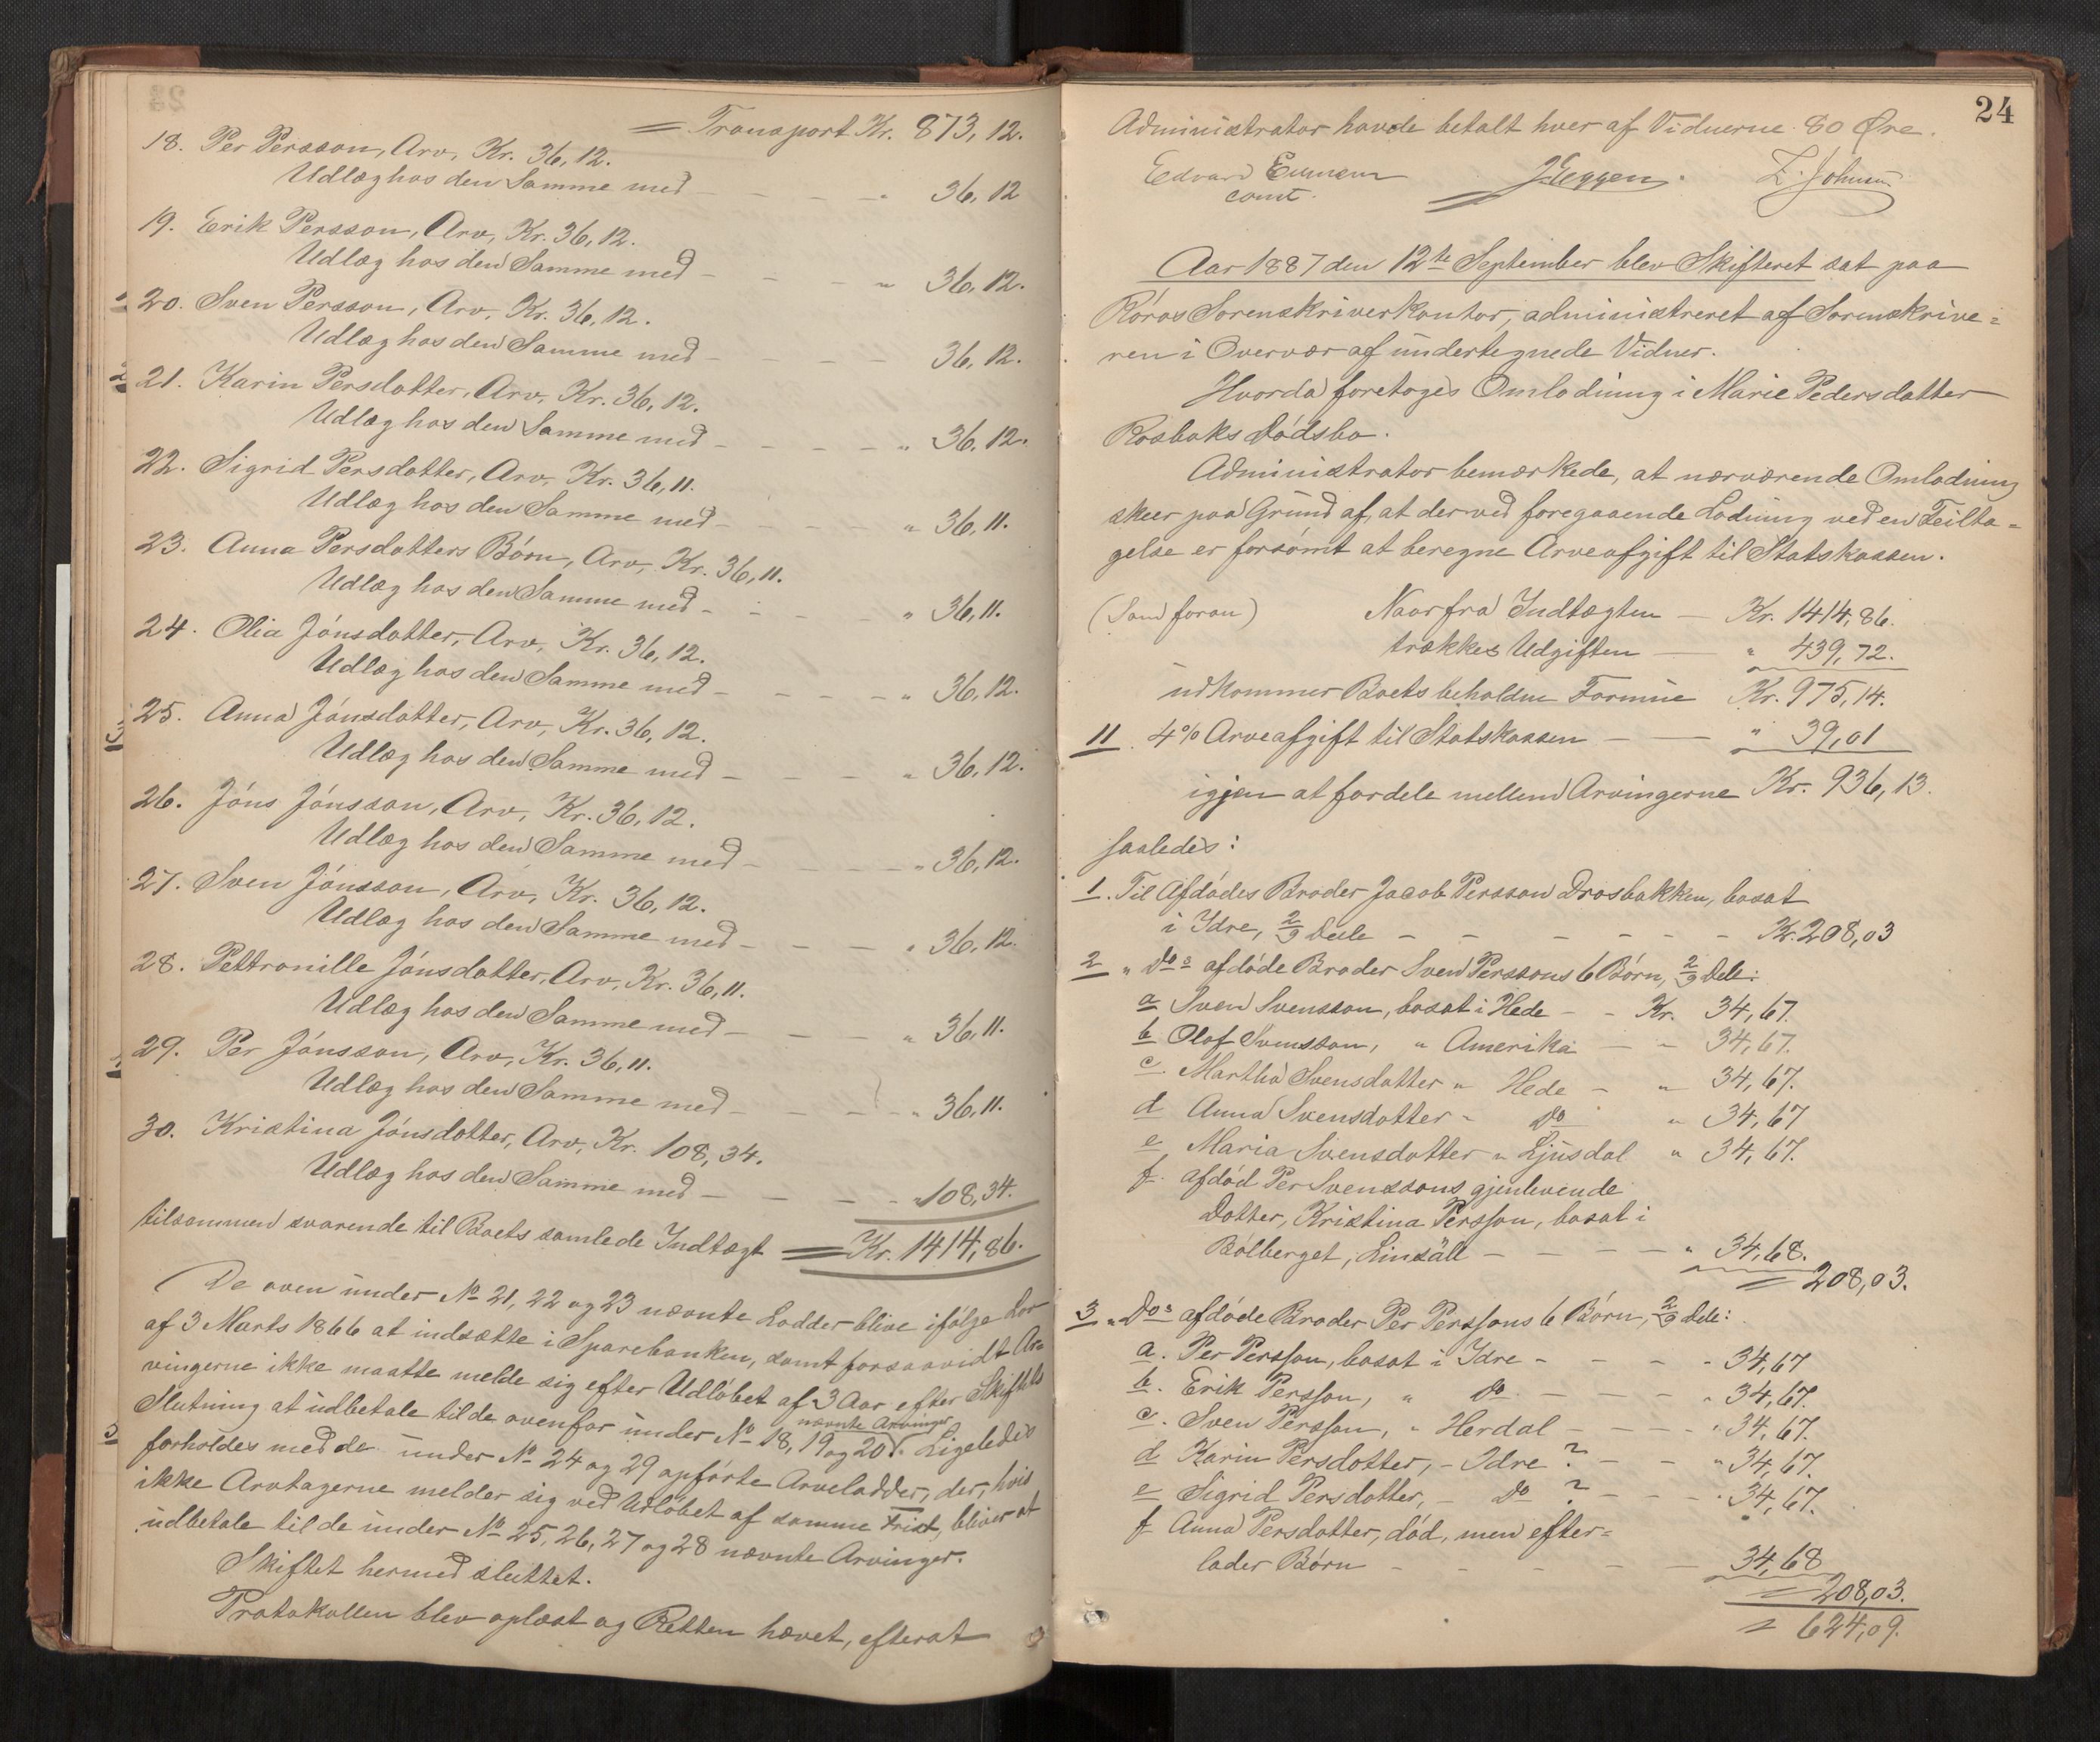 = Transport Kr. 873,12.
18. Per Persson, Arv, Kr. 36,12.
Udlæg hos den Samme med - - - " 36,12
19. Erik Persson, Arv, Kr. 36,12.
Udlæg hos den Samme med - - - " 36,12.
20. Sven Persson, Arv, Kr. 36,12.
Udlæg hos den Samme med - - - - 36,12.
21. Karin Persdotter, Arv, Kr. 36,12.
Udlæg hos den Samme med - - - - " 36,12.
22. Sigrid Persdotter, Arv, Kr. 36,11.
Udlæg hos den Samme med - - - " 36,11.
23. Anna Persdotters Börn, Arv, Kr. 36,11.
Udlæg hos den Samme med - - - " 36,11.
24. Olia Jónsdotter, Arv, Kr. 36,12.
Udlæg hos den Samme med - - - - " 36,12.
25. Anna Jónsdotter, Arv, Kr. 36,12.
Udlæg hos den Samme med - - - " 36,12.
26. Jóns Jónsson, Arv, Kr. 36,12.
Udlæg hos den Samme med - - - - " 36,12.
27. Sven Jónsson, Arv, Kr. 36,12.
Udlæg hos den Samme med - - - " 36,12.
28. Pettronille Jónsdotter, Arv, Kr. 36,11.
Udlæg hos den Samme med - - - " 36,11.
29. Per Jónsson, Arv, Kr. 36,11.
Udlæg hos den Samme med - - - - " 36,11.
30. Kristina Jónsdotter, Arv, Kr. 108,34.
Udlæg hos den Samme med - - - - " 108,34.
tilsammen svarende til Boets samlede Indtægt = Kr. 1414,86.
De oven under No 21, 22 og 23 nævnte Lodder blive ifölge Lov
af 3 Marts 1866 at indsætte i Sparebanken, samt forsaavidt Ar=
vingerne ikke maatte melde sig efter Udlöbet af 3 Aar efter Skiftets
Slutning at udbetale til de ovenfor under No 18, 19 og 20 nævnte Arvinger. Ligeledes
forholdes med de under No 24 og 29 opförte Arvelodder, der, hvis
ikke Arvtagerne melder sig ved Udlöbet af samme Frist, bliver at
udbetale til de under No 25, 26, 27 og 28 nævnte Arvinger.
Skiftet hermed sluttet.
Protokollen blev oplæst og Retten hævet, efterat
24
Administrator havde betalt hver af Vidnerne 80 Øre.
Edvard
const.
J Eggen.
Aar 1887 den 12te September blev Skifteret sat paa
Röros Sorenskriverkontor, administreret af Sorenskrive=
ren i Overvær af undertegnede Vidner.
Hvorda foretoges Omlodning i Marie Pedersdatter
Rosbaks Dödsbo.
Administrator bemærkede, at nærværende Omlodning
skeer paa Grund af, at der ved foregaaende Lodning ved en Feilta=
gelse er forsömt at beregne Arveafgift til Statskassen.
(Som foran) Naar fra Indtægten - Kr. 1414,86.
trækkes Udgiften - " 439,72.
udkommer Boets beholdne Formue Kr. 975,14.
11. 4% Arveafgift til Statskassen - - " 39,01
igjen at fordele mellem Arvingerne Kr. 936,13.
saaledes:
1. Til Afdödes Broder Jacob Persson Drosbakken, bosat
i Idre, 2/9 Dele - - - - - - Kr. 208,03
2 " Dos afdöde Broder Sven Perssons 6 Börn, 2/9 Dele:
a Sven Svensson, bosat i Hede - - Kr. 34,67.
b Olof Svensson, " Amerika - - 34,67.
c. Martha Svensdotter " Hede - " 34,67.
d Anna Svensdotter " Do " 34,67
e Maria Svensdotter " Ljusdal " 34,67.
f. afdöd Per Svenssons gjenlevende
Dotter, Kristina Persson, bosat i
Bölberget, Linsäll - - - - " 34,68.
= 208,03.
3 " Dos afdöde Broder Per Perssons 6 Börn, 2/9 Dele:
a. Per Persson, bosat i Idre - - - - 34,67
b. Erik Persson, " Do. - - - " 34,67.
c. Sven Persson, " Herdal - - - " 34,67.
d Karin Persdotter, - Idre ? - - " 34,67.
e Sigrid Persdotter, - Do ? - - - 34,67.
f Anna Persdotter, död, men efter=
lader Börn - - - - - 34,68
= 208,03.
= 624,09.